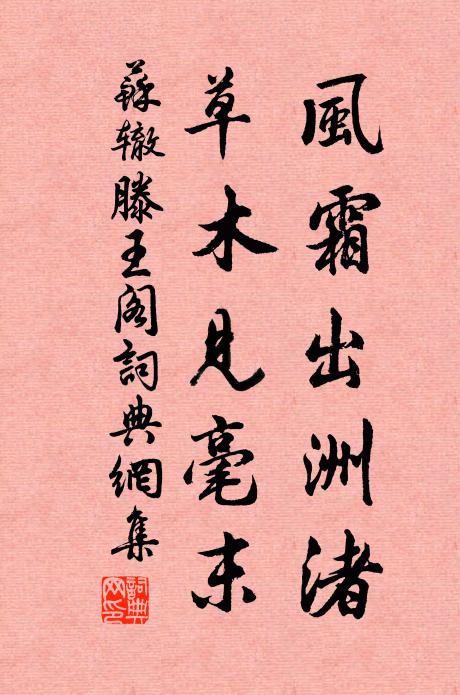 風霜出洲渚
草木見毫末
蘇辙滕王阁詞典網集
詞典
网印